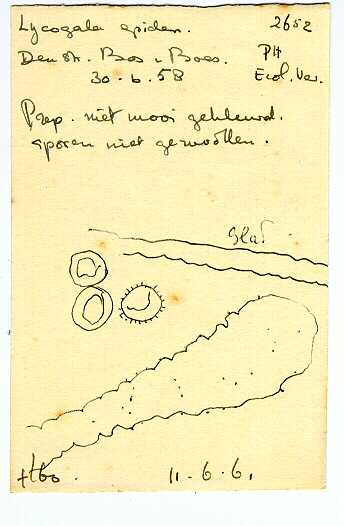 Lycogala epiden. 2652
Den str. Bos v. Boes. PH
30.6.58 Ecol. Ver.
Prep. niet mooi gekleurd.
sporen niet gezwollen.
glad
11.6.61